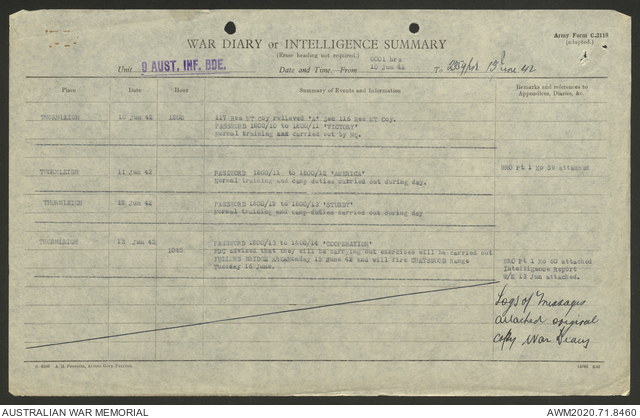 Army Form C.2118
(adapted.)
WAR DIARY or INTELLIGENCE SUMMARY
(Erase heading not required.)
Unit 9 AUST. INF. BDE.
Date and Time—From 0001 hrs 10 Jun 42 To 2359 hrs 13 June 42
Place Date Hour Summary of Events and Information Remarks and references to Appendices, Diaries, &c.
THORNLEIGH 10 Jun 42 1200 117 Res MT Coy relieved 'A' Sec 116 Res MT Coy.
PASSWORD 1800/10 to 1800/11 'VICTORY'
Normal training and carried out by HQ.
THORNLEIGH 11 Jun 42 PASSWORD 1800/11 to 1800/12 'AMERICA' BRO Pt 1 No 59 attached
Normal training and camp duties carried out during day.
THORNLEIGH 12 Jun 42 PASSWORD 1800/12 to 1800/13 'STURDY'
Normal training and camp duties carried out during day
THORNLEIGH 13 Jun 42 PASSWORD 1800/13 to 1800/14 'COOPERATION'
1045 VDC advised that they will be carrying out exercises will be carried out
FULLERS BRIDGE AREA Sunday 13 June 42 and will fire CHATSWOOD Range
Tuesday 16 June.
BRO Pt 1 No 60 attached
Intelligence Report
W/E 12 Jun attached.
Logs of Messages
attached original
copy War Diary
AUSTRALIAN WAR MEMORIAL
AWM2020.71.8460